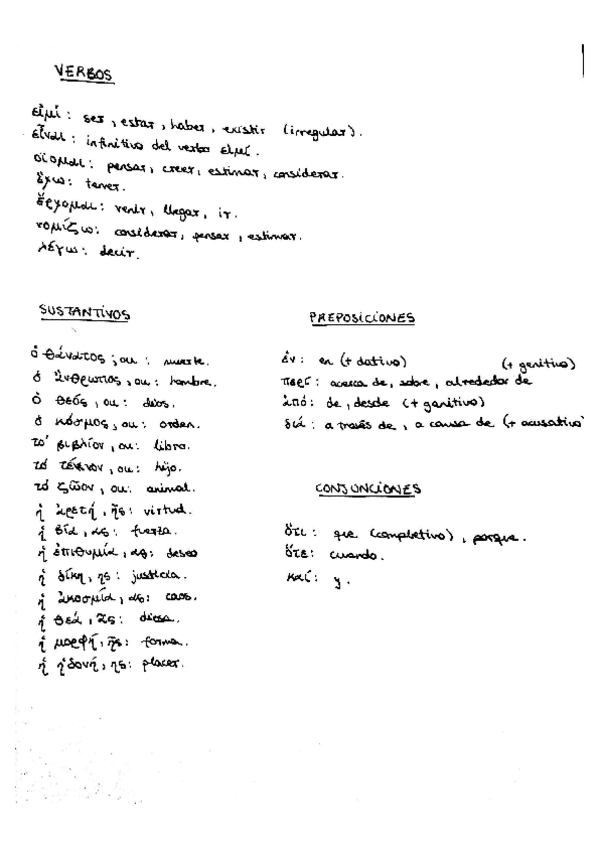 VERBOS
εἰμί: ser, estar, haber, existir (irregular).
εἶναι: infinitivo del verbo εἰμί.
οἴομαι: pensar, creer, estimar, considerar.
ἔχω: tener.
ἔρχομαι: venir, llegar, ir.
νομίζω: considerar, pensar, estimar.
λέγω: decir.
SUSTANTIVOS
ὁ θάνατος, ου: muerte.
ὁ ἄνθρωπος, ου: hombre.
ὁ θεός, ου: dios.
ὁ κόσμος, ου: orden.
τό βιβλίον, ου: libro.
τό τέκνον, ου: hijo.
τό ζῶον, ου: animal.
ἡ ἀρετή, ῆς: virtud.
ἡ βία, ας: fuerza.
ἡ ἐπιθυμία, ας: deseo
ἡ δίκη, ης: justicia.
ἡ ἀκοσμία, ας: caos.
ἡ θεά, ᾶς: diosa.
ἡ μορφή, ῆς: forma.
ἡ ἡδονή, ῆς: placer.
PREPOSICIONES
ἐν: en (+ dativo) (+ genitivo)
περί: acerca de, sobre, alrededor de
ἀπό: de, desde (+ genitivo)
διά: a través de, a causa de (+ acusativo
CONJUNCIONES
ὅτι: que (completivo), porque.
ὅτε: cuando.
καί: y.